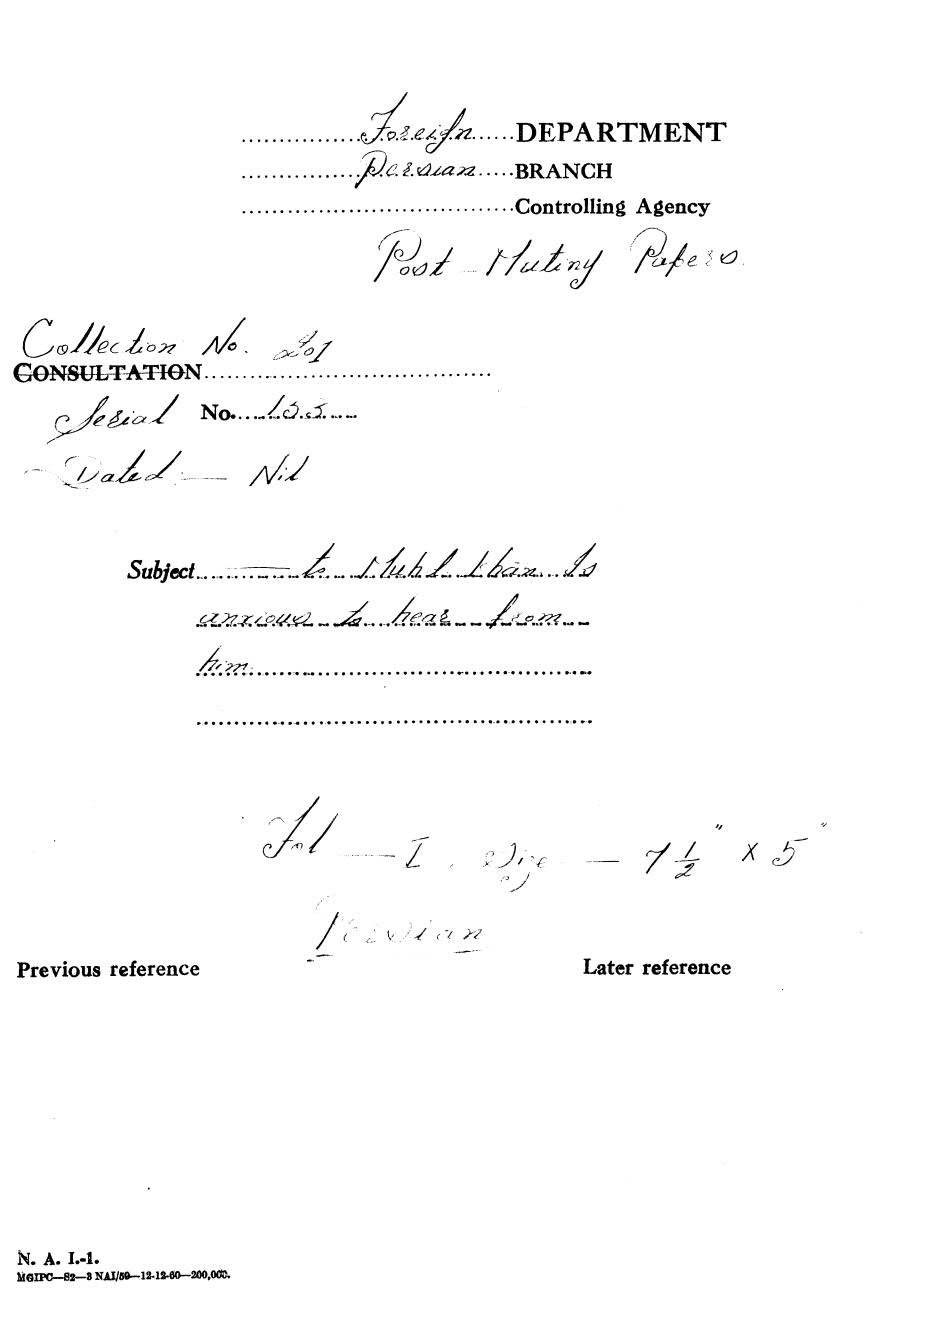 Foreign DEPARTMENT
Persian BRANCH
Controlling Agency
Post Mutiny Papers
Collection No. 201
CONSULTATION
Serial No. 155
Dated — Nil
Subject — to Muhd Khan. Is
anxious to hear from
him
Fol — I. Size — 7 1/2" x 5"
Persian
Previous reference Later reference
N. A. I.-1.
MGIPC—S2—3 NAI/59—12-12-60—200,000.